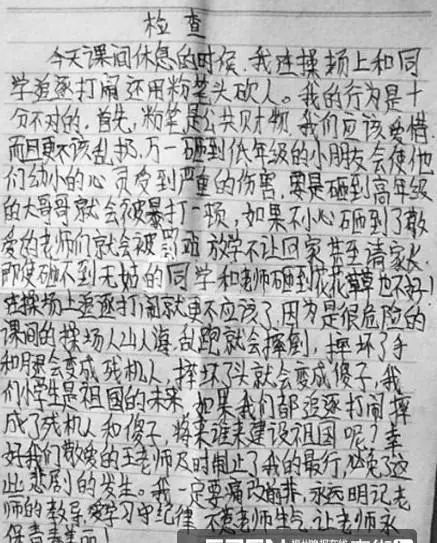 检查
今天课间休息的时候,我连操场上和同
学追逐打闹还用粉笔头砍人。我的行为是十
分不对的,首先,粉笔是公共财物,我们应该爱惜
而且更不该乱扔,万一砸到低年级的小朋友会使他
们幼小的心灵受到严重的伤害,要是砸到高年级
的大哥哥就会被暴打一顿,如果不小心砸到了敬
爱的老师们就会被罚站放学不让回家甚至请家长.
即使砸不到无姑的同学和老师砸到花花草草也不好!
连操场上追逐打闹就更不应该了,因为是很危险的
课间的操场人山人海,乱跑就会摔倒,摔坏了手
和腿会变成残机人,摔坏了头就会变成傻子,我
们小学生是祖国的未来,如果我们都追逐打闹摔
成了残机人和傻子,将来谁来建设祖国呢?幸
好我们敬爱的王老师及时制止了我的最行,避免了这
些悲剧的发生。我一定要痛改前非,永远明记老
师的教导,好好学习守纪律不惹老师生气,让老师永
保青春美丽!